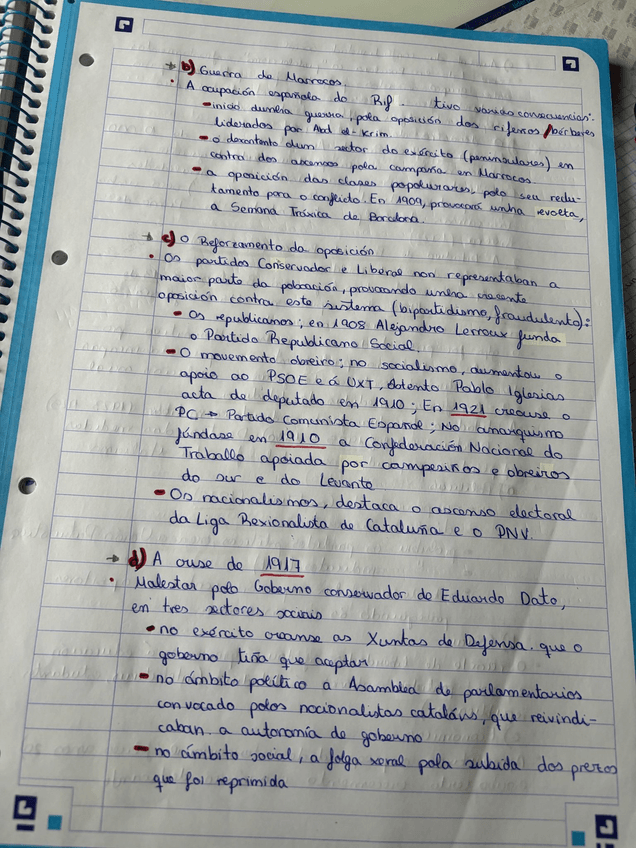 → b) Guerra de Marrocos.
• A ocupación española do Rif. tivo varias consecuencias:
- inicio dunha guerra, pola oposición dos rifeños / bérberes
liderados por Abd el-Krim.
- o descontento dun sector do exército (peninsulares) en
contra dos ascensos pola campaña en Marrocos.
- a oposición das clases popoulares, polo seu reclu-
tamento para o conflicto. En 1909, provocará unha revolta,
a Semana Tráxica de Barclona.
→ c) O Reforzamento da oposición
• Os partidos Conservador e Liberal non representaban a
maior parte da poboación, provocando unha crecente
oposición contra este sistema (bipartidismo, fraudulento):
- Os republicanos; en 1908 Alejandro Lerroux funda
o Partido Republicano Social.
- O movemento obreiro; no socialismo, aumentou o
apoio ao PSOE e á UXT, obtento Pablo Iglesias
acta de deputado en 1910; En 1921 creouse o
PC → Partido Comunista Español; No anarquismo
fúndase en 1910 a Confederación Nacional do
Traballo apoiada por campesiños e obreiros
do sur e do Levante
- Os nacionalismos, destaca o ascenso electoral
da Liga Rexionalista de Cataluña e o PNV.
→ d) A crise de 1917
• Malestar polo Goberno conservador de Eduardo Dato,
en tres sectores sociais
- no exército creanse as Xuntas de Defensa. que o
goberno tiña que aceptar
- no ámbito político a Asamblea de parlamentarios
convocado polos nacionalistas cataláns, que reivindi-
caban a autonomía de goberno
- no ámbito social, a folga xeral pola subida dos prezos
que foi reprimida